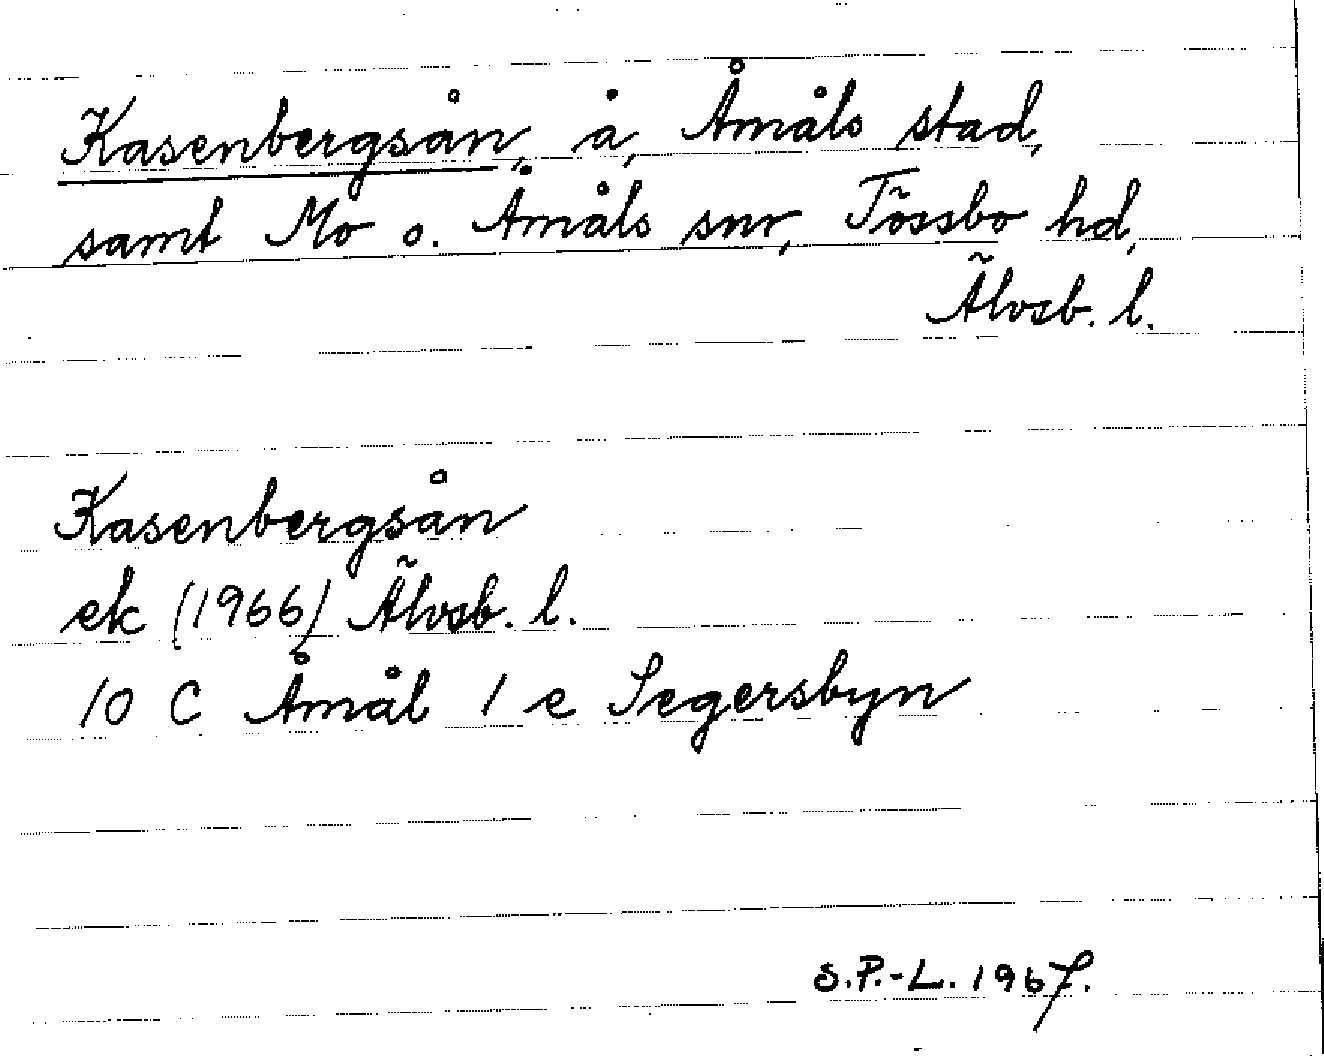 Kasenbergsån, å, Åmåls stad,
samt Mo o. Åmåls snr, Tössbo hd,
Älvsb. l.
Kasenbergsån
ek (1966) Älvsb. l.
10 C Åmål 1 e Segersbyn
S.P.-L. 1967.